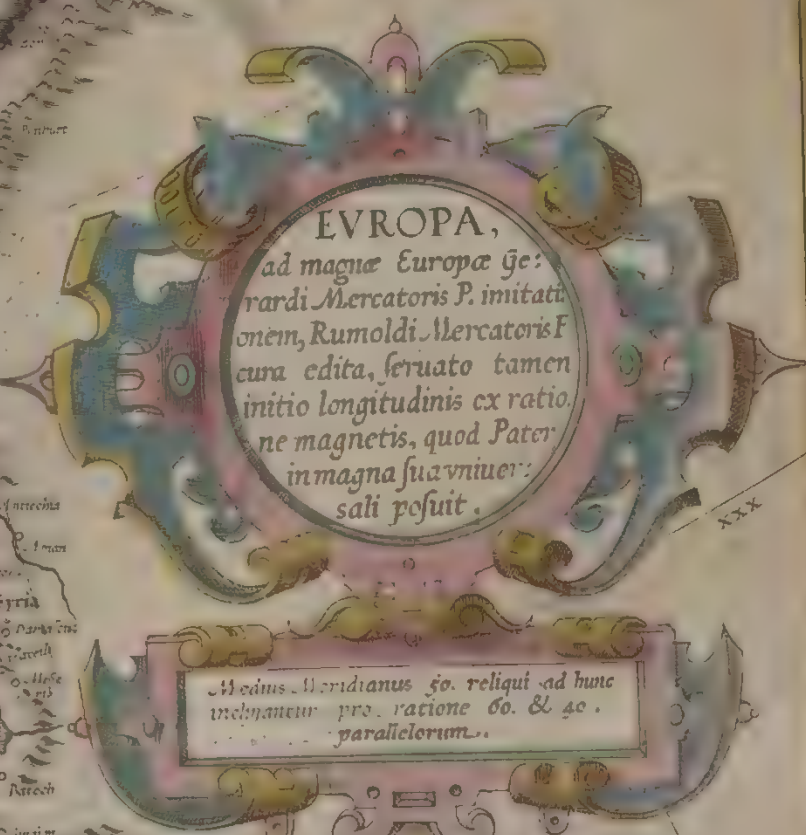 EVROPA,
ad magnæ Europæ Ge:
rardi Mercatoris P. imitati
onem, Rumoldi Mercatoris F
cura edita, ſeruato tamen
initio longitudinis ex ratio.
ne magnetis, quod Pater
in magna ſua vniuer:
sali poſuit.
XXX
Antiochia
Aman
Medius Meridianus 50. reliqui ad hunc
inclinantur pro ratione 60. & 40.
parallelorum.